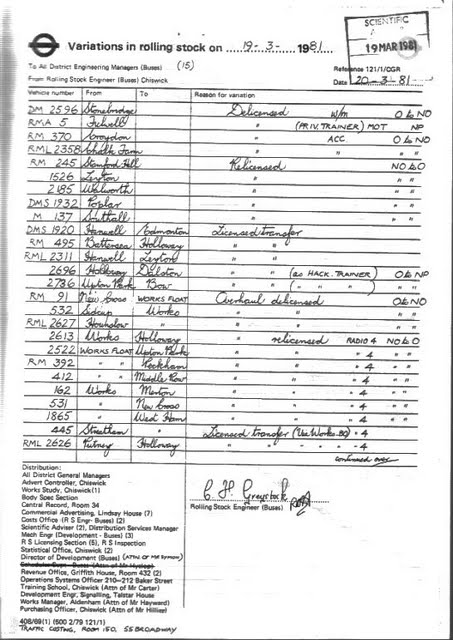 Variations in rolling stock on 19-3- 1981
SCIENTIFIC
19 MAR 1981
To All District Engineering Managers (Buses) (15)
From Rolling Stock Engineer (Buses) Chiswick
Reference 121/1/OGR
Date 20-3-81
Vehicle number From To Reason for variation
DM 2596 Stonebridge Delicensed w/m O to NO
RMA 5 Fulwell " (PRIV. TRAINER) MOT NP
RM 370 Croydon " ACC. O to NO
RML 2358 Chalk Farm " " " "
RM 245 Stamford Hill Relicensed NO to O
1526 Leyton " " "
2185 Walworth " " "
DMS 1932 Poplar " " "
M 137 Southall " " "
DMS 1920 Hanwell Edmonton Licensed transfer
RM 495 Battersea Holloway " "
RML 2311 Hanwell Leyton " "
2696 Holloway Dalston " " (as HACK. TRAINER) O to NP
2736 Upton Park Bow " " ( " " ) " "
RM 91 New Cross WORKS FLOAT Overhaul delicensed O to NO
532 Sidcup Works " " " "
RML 2627 Hounslow " " " " "
2613 Works Holloway " relicensed RADIO 4 NO to O
2522 WORKS FLOAT Upton Park " " " 4 " "
RM 392 " " Peckham " " " 4 " "
412 " " Middle Row " " " 4 " "
162 Works Merton " " " 4 " "
531 " New Cross " " " 4 " "
1865 " West Ham " " " 4 " "
445 Streatham " Licensed transfer (Via Works. ) " 4
RML 2626 Putney Holloway " " " " " 4
continued over
Distribution:
All District General Managers
Advert Controller, Chiswick
Works Study, Chiswick (1)
Body Spec Section
Central Record, Room 34
Commercial Advertising, Lindsay House (7)
Costs Office (R S Engr- Buses) (2)
Scientific Adviser (2), Distribution Services Manager
Mech Engr (Development - Buses) (3)
R S Licensing Section (5), R S Inspection
Statistical Office, Chiswick (2)
Director of Development (Buses)
Revenue Office, Griffith House, Room 432 (2)
Operations Systems Officer 210-212 Baker Street
Training School, Chiswick (Attn of Mr Carter)
Development Engr, Signalling, Telstar House
Works Manager, Aldenham (Attn of Mr Hayward)
Purchasing Officer, Chiswick (Attn of Mr Hillier)
C H Greystock
Rolling Stock Engineer (Buses)
408/69(1) (500 2/79 121/1)
TRAFFIC COSTING, ROOM 150, 55 BROADWAY